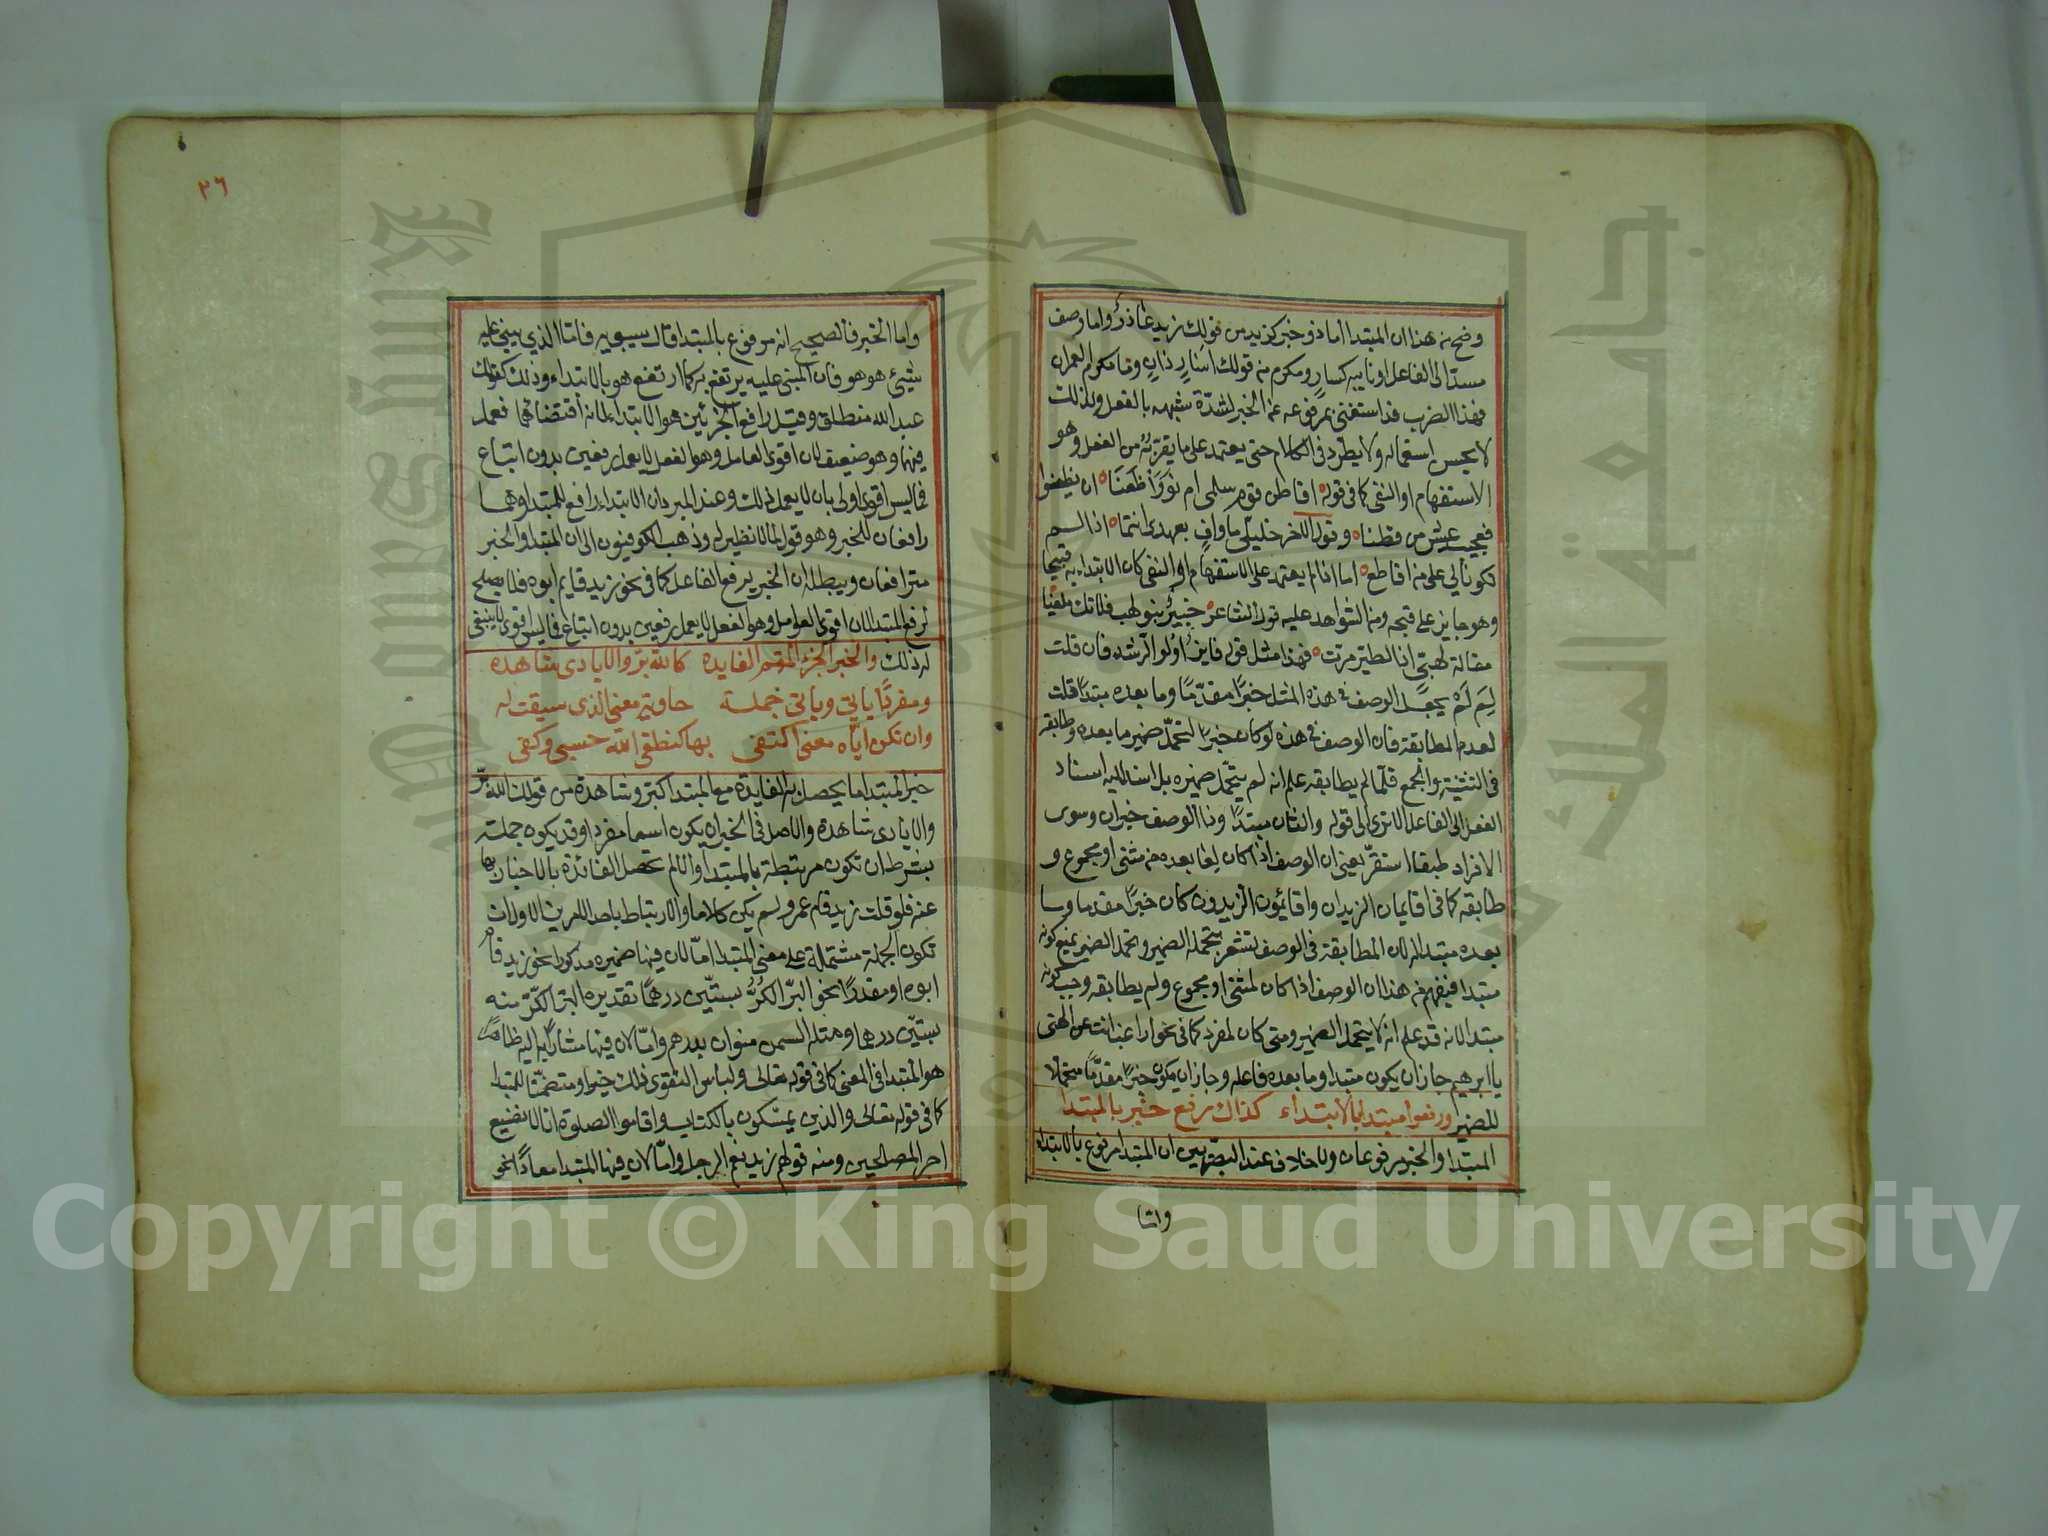 وضح من هذا ان المبتدا اما ذو خبر كزيد من قولك زيد عاذر واما وصف
مسند الى الفاعل او نايبه كسار ومكرم من قولك اسار ذان وما مكرم العمران
فهذا الضرب قد استغنى بمرفوعه عن الخبر لشدة شبهه بالفعل ولذلك
لا يحسن استعماله ولا يطرد في الكلام حتى يعتمد على ما يقربه من الفعل وهو
الاستفهام او النفي كما في قوله اقاطن قوم سلمى ام نووا ظعنا ان يظعنوا
فعجيب عيش من قطنا وقول الاخر خليلي ما واف بعهدي انتما اذا لم
تكونا لي على من اقاطع اما اذا لم يعتمد على الاستفهام او النفي كان الابتدا به قبيحا
وهو جايز على قبحه ومن الشواهد عليه قول الشاعر خبير بنو لهب فلا تك ملغيا
مقالة لهبي اذا الطير مرت فهذا مثل قوله فايز اولوا الرشد فان قلت
لم لم يجعل الوصف في هذه المثل خبرا مقدما وما بعده مبتدا قلت
لعدم المطابقة فان الوصف في هذه لو كان خبرا لتحمل ضمير ما بعده وطابقه
في التثنية والجمع فلما لم يطابقه علم انه لم يتحمل ضميره بل اسند اليه اسناد
الفعل الى الفاعل الا ترى الى قوله والثان مبتدا وذا الوصف خبر ان وسوى
الافراد طبقا استقر يعني ان الوصف اذا كان لما بعده من مثنى او مجموع و
طابقه كما في اقايمان الزيدان واقائمون الزيدون كان خبرا مقدما وما
بعده مبتدا لان المطابقة في الوصف تشعر بتحمله الضمير وتحمل الضمير يمنع كونه
مبتدا فيفهم من هذا ان الوصف اذا كان لمثنى او مجموع ولم يطابقه وجب كونه
مبتدا لانه قد علم انه لا يتحمل الضمير ومتى كان لمفرد كما في نحو اراغب انت عن الهتي
يا ابرهيم جاز ان يكون مبتدا وما بعده فاعله وجاز ان يكون خبرا مقدما متحملا
للضمير ورفعوا مبتدا بالابتداء كذاك رفع خبر بالمبتدا
المبتدا والخبر مرفوعان ولا خلاف عند البصريين ان المبتدا مرفوع بالابتداء
واما
٣٦
واما الخبر فالصحيح انه مرفوع بالمبتدا قال سيبويه فاما الذي يبنى عليه
شيئ هو هو فان المبني عليه يرتفع به كما ارتفع هو بالابتداء وذلك كقولك
عبد الله منطلق وقيل رافع الجزئين هو الابتداء لانه اقتضاهما فعمل
فيهما وهو ضعيف لان اقوى العامل وهو الفعل لا يعمل رفعين بدون اتباع
فما ليس اقوى اولى بان لا يعمل ذلك وعند المبرد ان الابتداء رافع للمبتدا وهما
رافعان للخبر وهو قول بما لا نظير له وذهب الكوفيون الى ان المبتدا والخبر
مترافعان ويبطله ان الخبر يرفع الفاعل كما في نحو زيد قايم ابوه فلا يصلح
لرفع المبتدا لان اقوى العوامل وهو الفعل لا يعمل رفعين بدون اتباع فما ليس اقوى لا ينبغي
له ذلك والخبر الجزء المتم الفايده كالله بر والايادي شاهده
ومفردا ياتي وياتي جمله حاوية معنى الذي سيقت له
وان تكن اياه معنى اكتفى بها كنطقي الله حسبي وكفى
خبر المبتدا ما يحصل به الفايدة مع المبتدا كبر وشاهدة من قولك الله بر
والايادي شاهدة والاصل في الخبر ان يكون اسما مفردا وقد يكون جملة
بشرط ان تكون مرتبطة بالمبتدا والا لم تحصل الفائدة بالاخبار بها
عنه فلو قلت زيد قام عمرو لم يكن كلاما والارتباط باحد امرين الاول ان
تكون الجملة مشتملة على معنى المبتدا اما لان فيها ضميره مذكورا نحو زيد قام
ابوه او مقدرا نحو البر الكر بستين درهما تقديره البر الكر منه
بستين درهما ومثله السمن منوان بدرهم واما لان فيها مشارا به اليه ظاهرا
هو المبتدا في المعنى كما في قوله تعالى ولباس التقوى ذلك خير او متضمنا للمبتدا
كما في قوله تعالى والذين يمسكون بالكتاب واقاموا الصلوة انا لا نضيع
اجر المصلحين ومنه قولهم زيد نعم الرجل واما لان فيها المبتدا معادا نحو
Copyright © King Saud University
King Saud University
جامعة الملك سعود